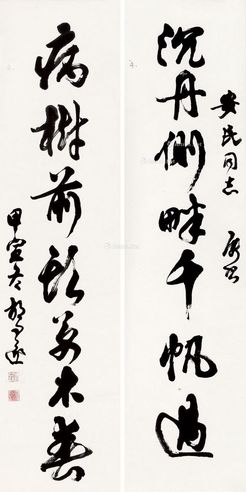 安民同志
沉舟側畔千帆過
病樹前頭萬木春
甲寅冬胡问遂